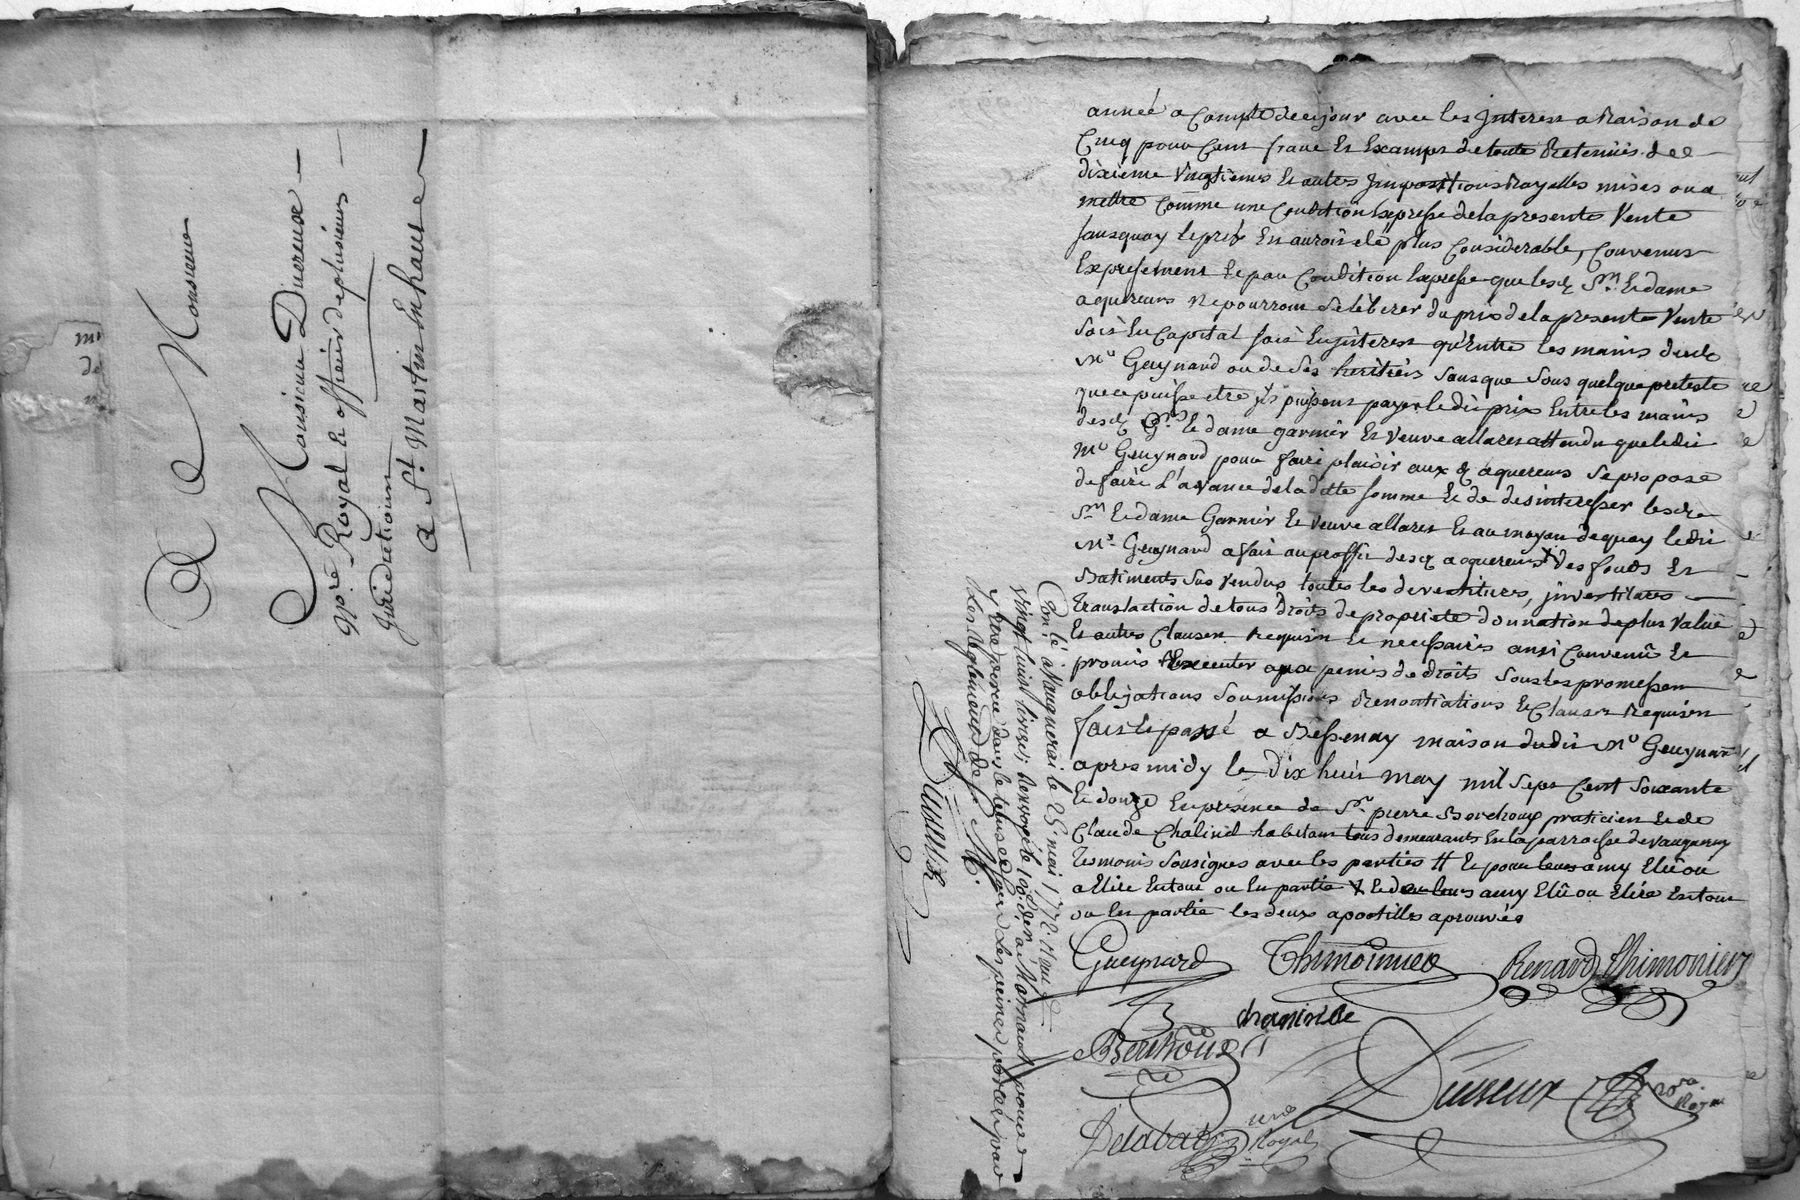 A Monsieur
Monsieur Dusreuse
Nore Royal et officier de plusieurs
Juridictions
A St Martin En haut
année a Compté de ce jour avec les Interest a Raison de
Cinq pour Cent franc Et Exampt de toute Retenües de
dixième Vingtiemes Et autres Impositions Royalles mises ou a
mettre Comme une Condition Expresse de la presente Vente
sans quoy le prix En auroit été plus Considerable, Convenus
Expressement Et par Condition Expresse que lesd Sr Et dame
aquereurs Ne pourront se libérer du prix de la presente Vente
soit En Capital soit En jnterest qu'Entre les mains dud
Me Gueynard ou de ses heritiers sans que sous quelque preteste
que ce puisse etre jls puissent payer le dit prix Entre les mains
desd Sr Et dame garnier Et Veuve allares attendu que le dit
Me Gueynard pour faire plaisir aux d aquereurs se propose
de faire L'avance de la ditte somme Et de desinteresser lesd
Srs Et dame Garnier Et Veuve allares Et au moyen de quoy le dit
Me Gueynard a fait au proffit desd acquereurs des fonds Et
Batiments sus Vendus toutes les devestitures, jnvestitures
Translaction de tous droits de proprieté donnation de plus Value
Et autres Clauses Requises Et necessaires ainsi Convenu Et
promis Executer a peines de droits sous les promesses
obligations soumissions Renontiations Et Clauses Requises
fait Et passé a Bessenay maison dudit Me Gueynard
apres midy le Dix huit may mil sept Cent soixante
Et douze En presence de Sr pierre Berthoux praticien Et de
Claude Chalind habitant tous demeurants En la parroisse de Vaugneray
Tesmoins sousignes avec les parties # Et pour leurs amy Elû ou
a Elire Entout ou En partie X Et de leurs amy Elû ou Elire Entout
ou En partie les deux apostilles aprouvés
Gueynard Thimonnier Renard Thimonier
Berthoux
Duvreux
Royal
Delabati
Royal
Con.lé à Vaugneray le 25 mai 1772. Reçu
Vingt huit livres, Renvoyé le 100.e den. a Mornant pour
y être perçu dans le tems et sous les peines portées par
Les Reglements de sa M.